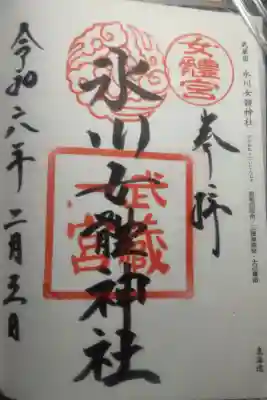 武蔵国 氷川女體神社
奉拝
女體宮
氷川女體神社
武蔵
一宮
令和六年二月三日